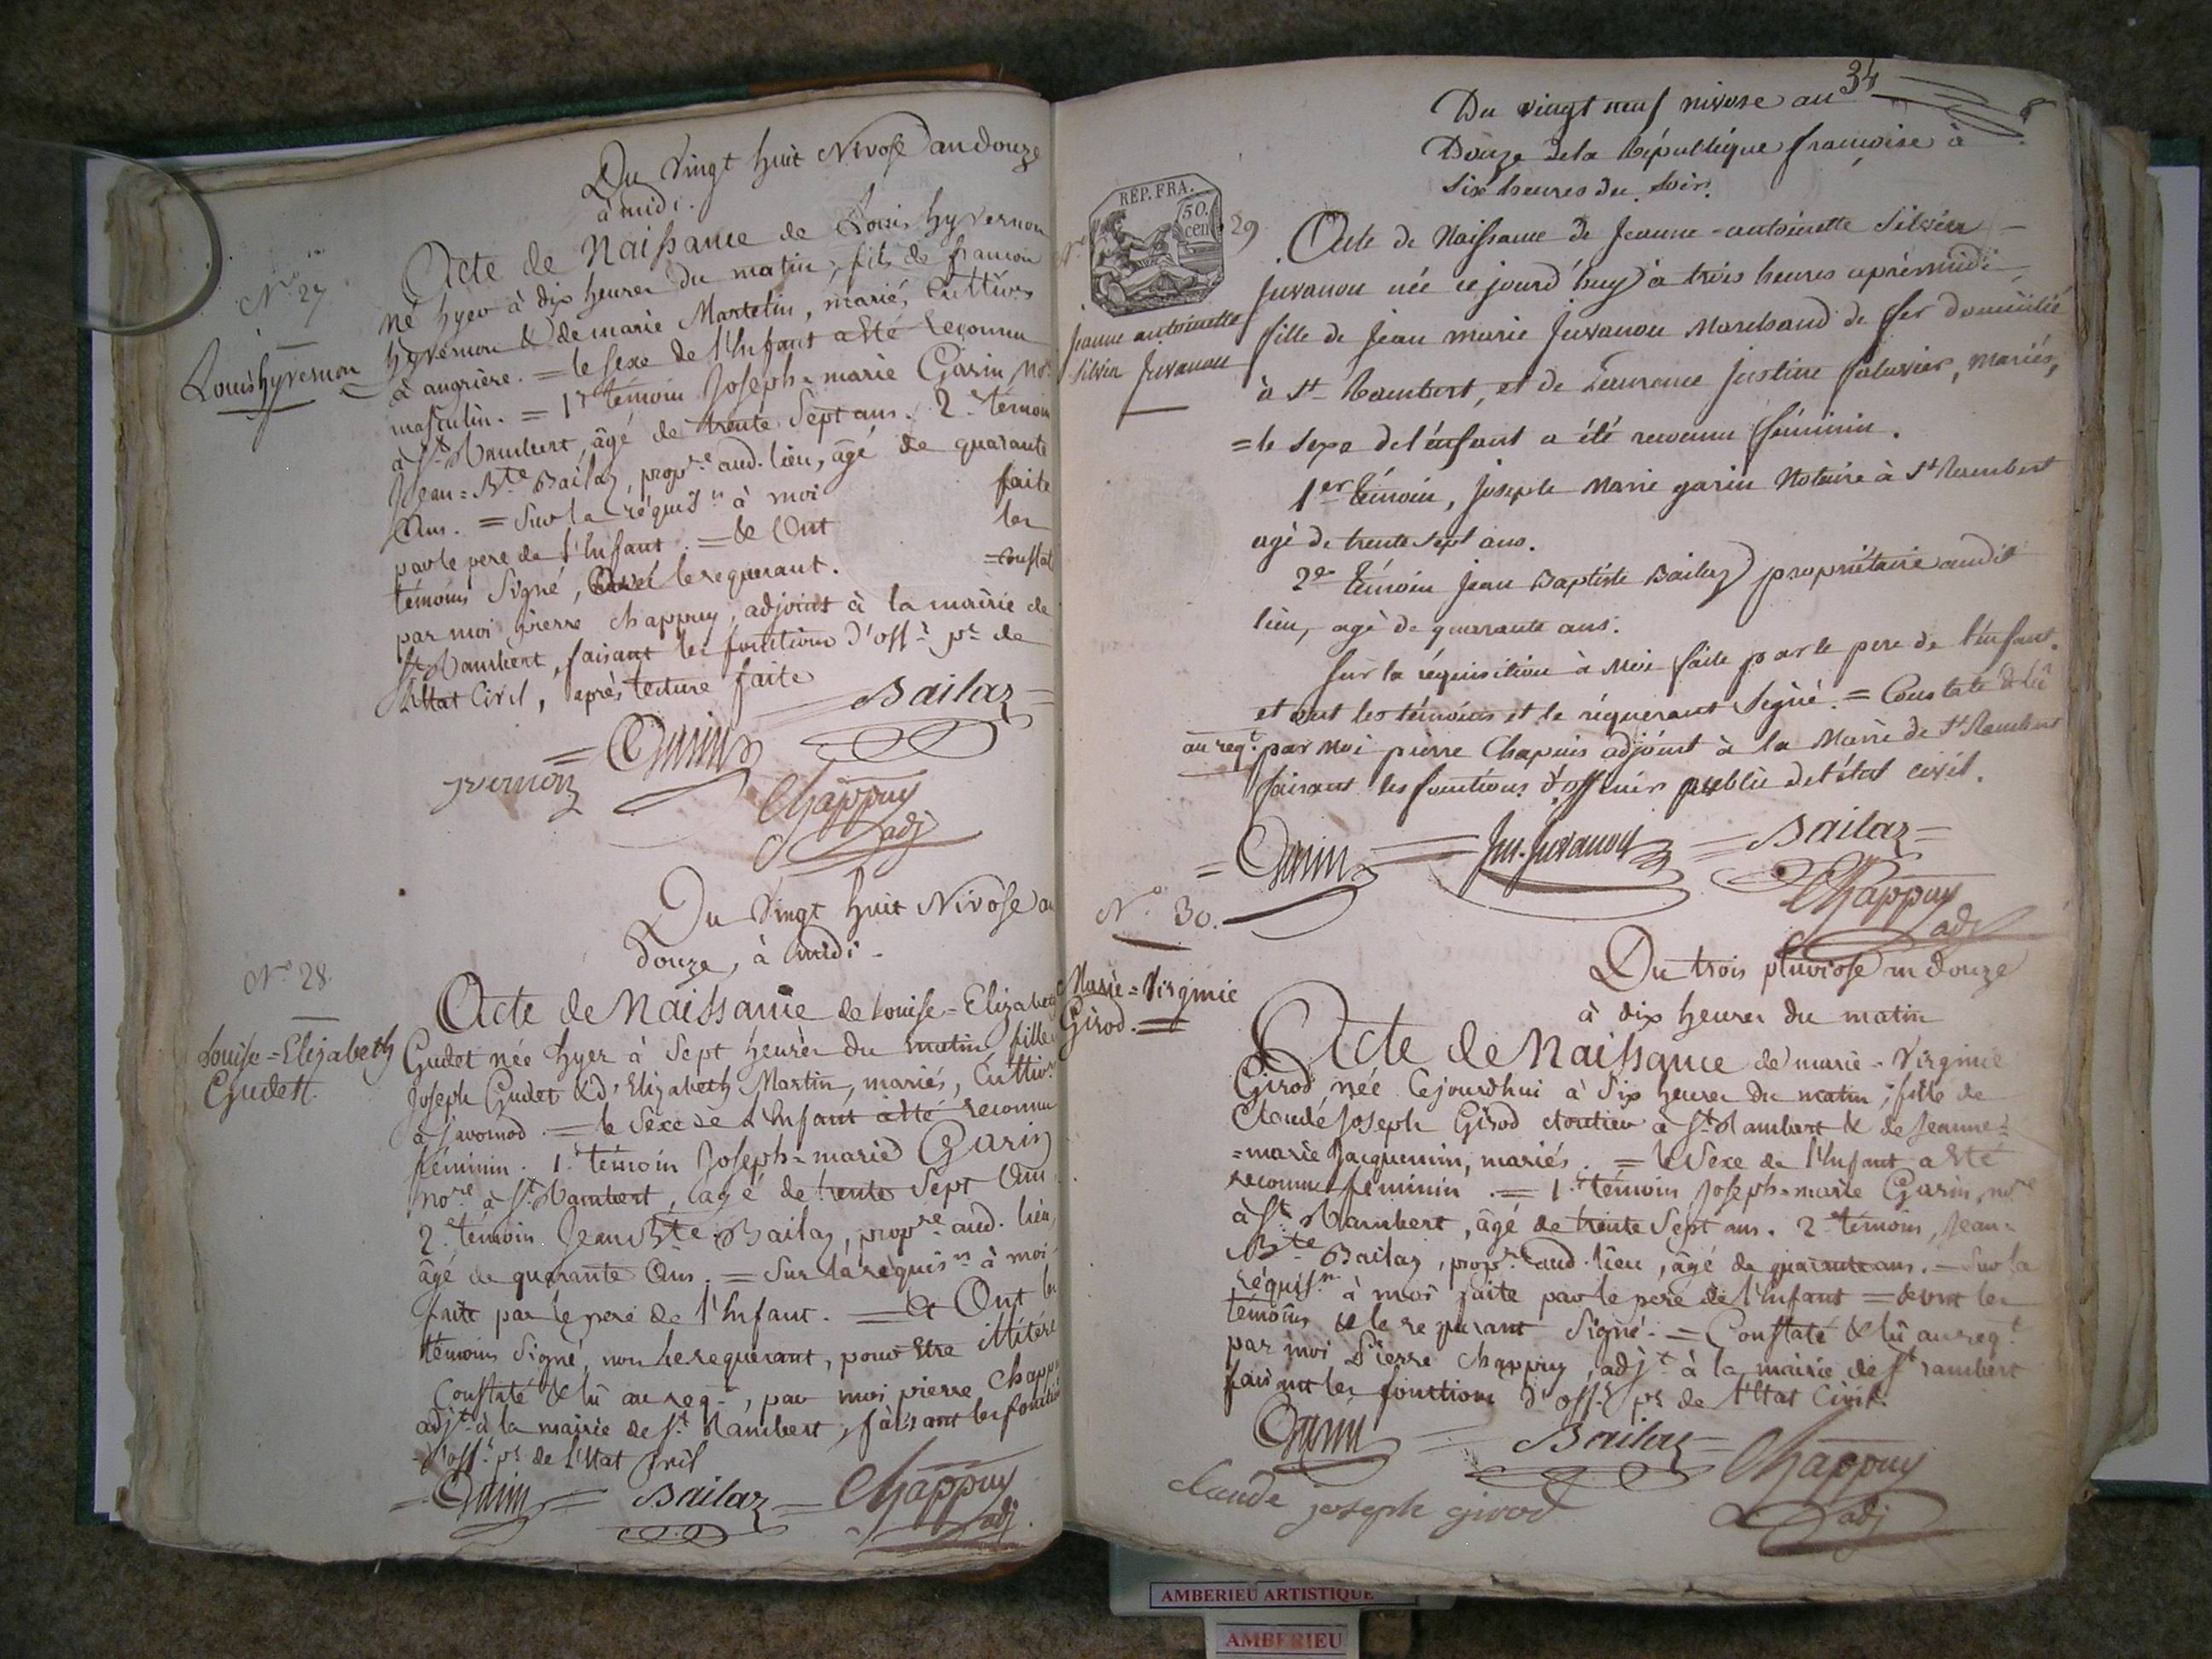 Du Vingt huit Nivose an douze
à midi.
N° 27
Louis hyvernon
Acte de Naissance de Louis hyvernon
né hyer à dix heures du matin, fils de francois
hyvernon & de marie Martelin, mariés, Cultivrs
à angrière. = le sexe de l'Enfant a Eté reconnu
masculin. = 1r témoin Joseph-marie Garin, nore
à St Rambert, âgé de trente Sept ans. 2e témoin
Jean=Bte Bailaz, propre aud. lieu, âgé de quarante
Ans. = Sur la réquisn à moi faite
par le pere de l'Enfant. = & Ont les
témoins Signé, avec le requerant. = Constat
par moi pierre Chappuy, adjoint à la mairie de
St Rambert, faisant les fonctions d'offr pc de
l'Etat Civil, après lecture faite
= Garin = Bailaz =
yvernon
Chappuy
adj
Du Vingt huit Nivose an
douze, à midi.
N° 28.
Louise=Elizabeth
Gudet.
Acte de Naissance de Louise=Elizabeth
Gudet née hyer à Sept heures du matin, fille
Joseph Gudet & d'Elizabeth Martin, mariés, Cultivrs
à Javornod. = le Sexe de l'Enfant a Eté reconnu
féminin. 1r témoin Joseph=marie Garin
nore à St Rambert, âgé de trente Sept Ans.
2e témoin Jean Bte Bailaz, propre aud. lieu,
âgé de quarante Ans. = Sur la réquisn à moi
faite par le pere de l'Enfant. = & Ont les
témoins Signé, non le requerant, pour Etre illitéré
Constaté & lû au reqt, par moi pierre Chappuy
adjt à la mairie de St Rambert, faisant les fonctions
d'offr pc de l'Etat Civil
= Garin = Bailaz = Chappuy
adj.
34
8
Du vingt neuf nivose an
Douze de la République françoise à
six heures du soir.
REP. FRA.
50.
cent
N° 29
jeanne antoinette
Silvia Juvanon
Acte de Naissance de Jeanne-antoinette Silvia
Juvanon née ce jourd'huy à trois heures aprèsmidi
fille de Jean marie Juvanon Marchand de fer domicilié
à St Rambert, et de Laurence Justine Saluvier, mariés,
= le sexe de l'énfant a été reconnu féminin.
1er témoin, Joseph Marie garin Notaire à St Rambert
agé de trente sept ans.
2e témoin Jean Baptiste Bailaz propriétaire audit
lieu, agé de quarante ans.
Sur la réquisition à Moi faite par le pere de l'énfant.
et ont les témoins et le réquerant signé. = Constaté & lû
au reqt. par Moi pierre Chapuis adjoint à la Mairie de St Rambert
faisant les fonctions d'officier public de l'état civil.
= Garin = Jn. Juvanon = Bailaz =
Chappuy
adj
N° 30.
Marie=Virginie
Girod. =
Du trois pluviose an douze
à dix heures du matin
Acte de Naissance de marie-Virginie
Girod née Cejourdhui à Six heures du matin, fille de
Claude Joseph Girod cloutier à St Rambert & de Jeanne=
=marie Jacquemin, mariés. = le Sexe de l'Enfant a Eté
reconnu féminin. = 1r témoin Joseph=marie Garin, nore
à St Rambert, âgé de trente Sept ans. 2e témoin, Jean=
Bte Bailaz, propre aud. lieu, âgé de quarante ans. = Sur la
réquisn à moi faite par le pere de l'Enfant = & ont les
témoins & le requerant Signé. = Constaté & lû au reqt
par moi Pierre Chappuy, adjt à la mairie de St rambert
faisant les fonctions d'offr pc de l'Etat Civil.
Garin = Bailaz = Chappuy
adj
claude joseph girod
AMBERIEU ARTISTIQUE
AMBERIEU